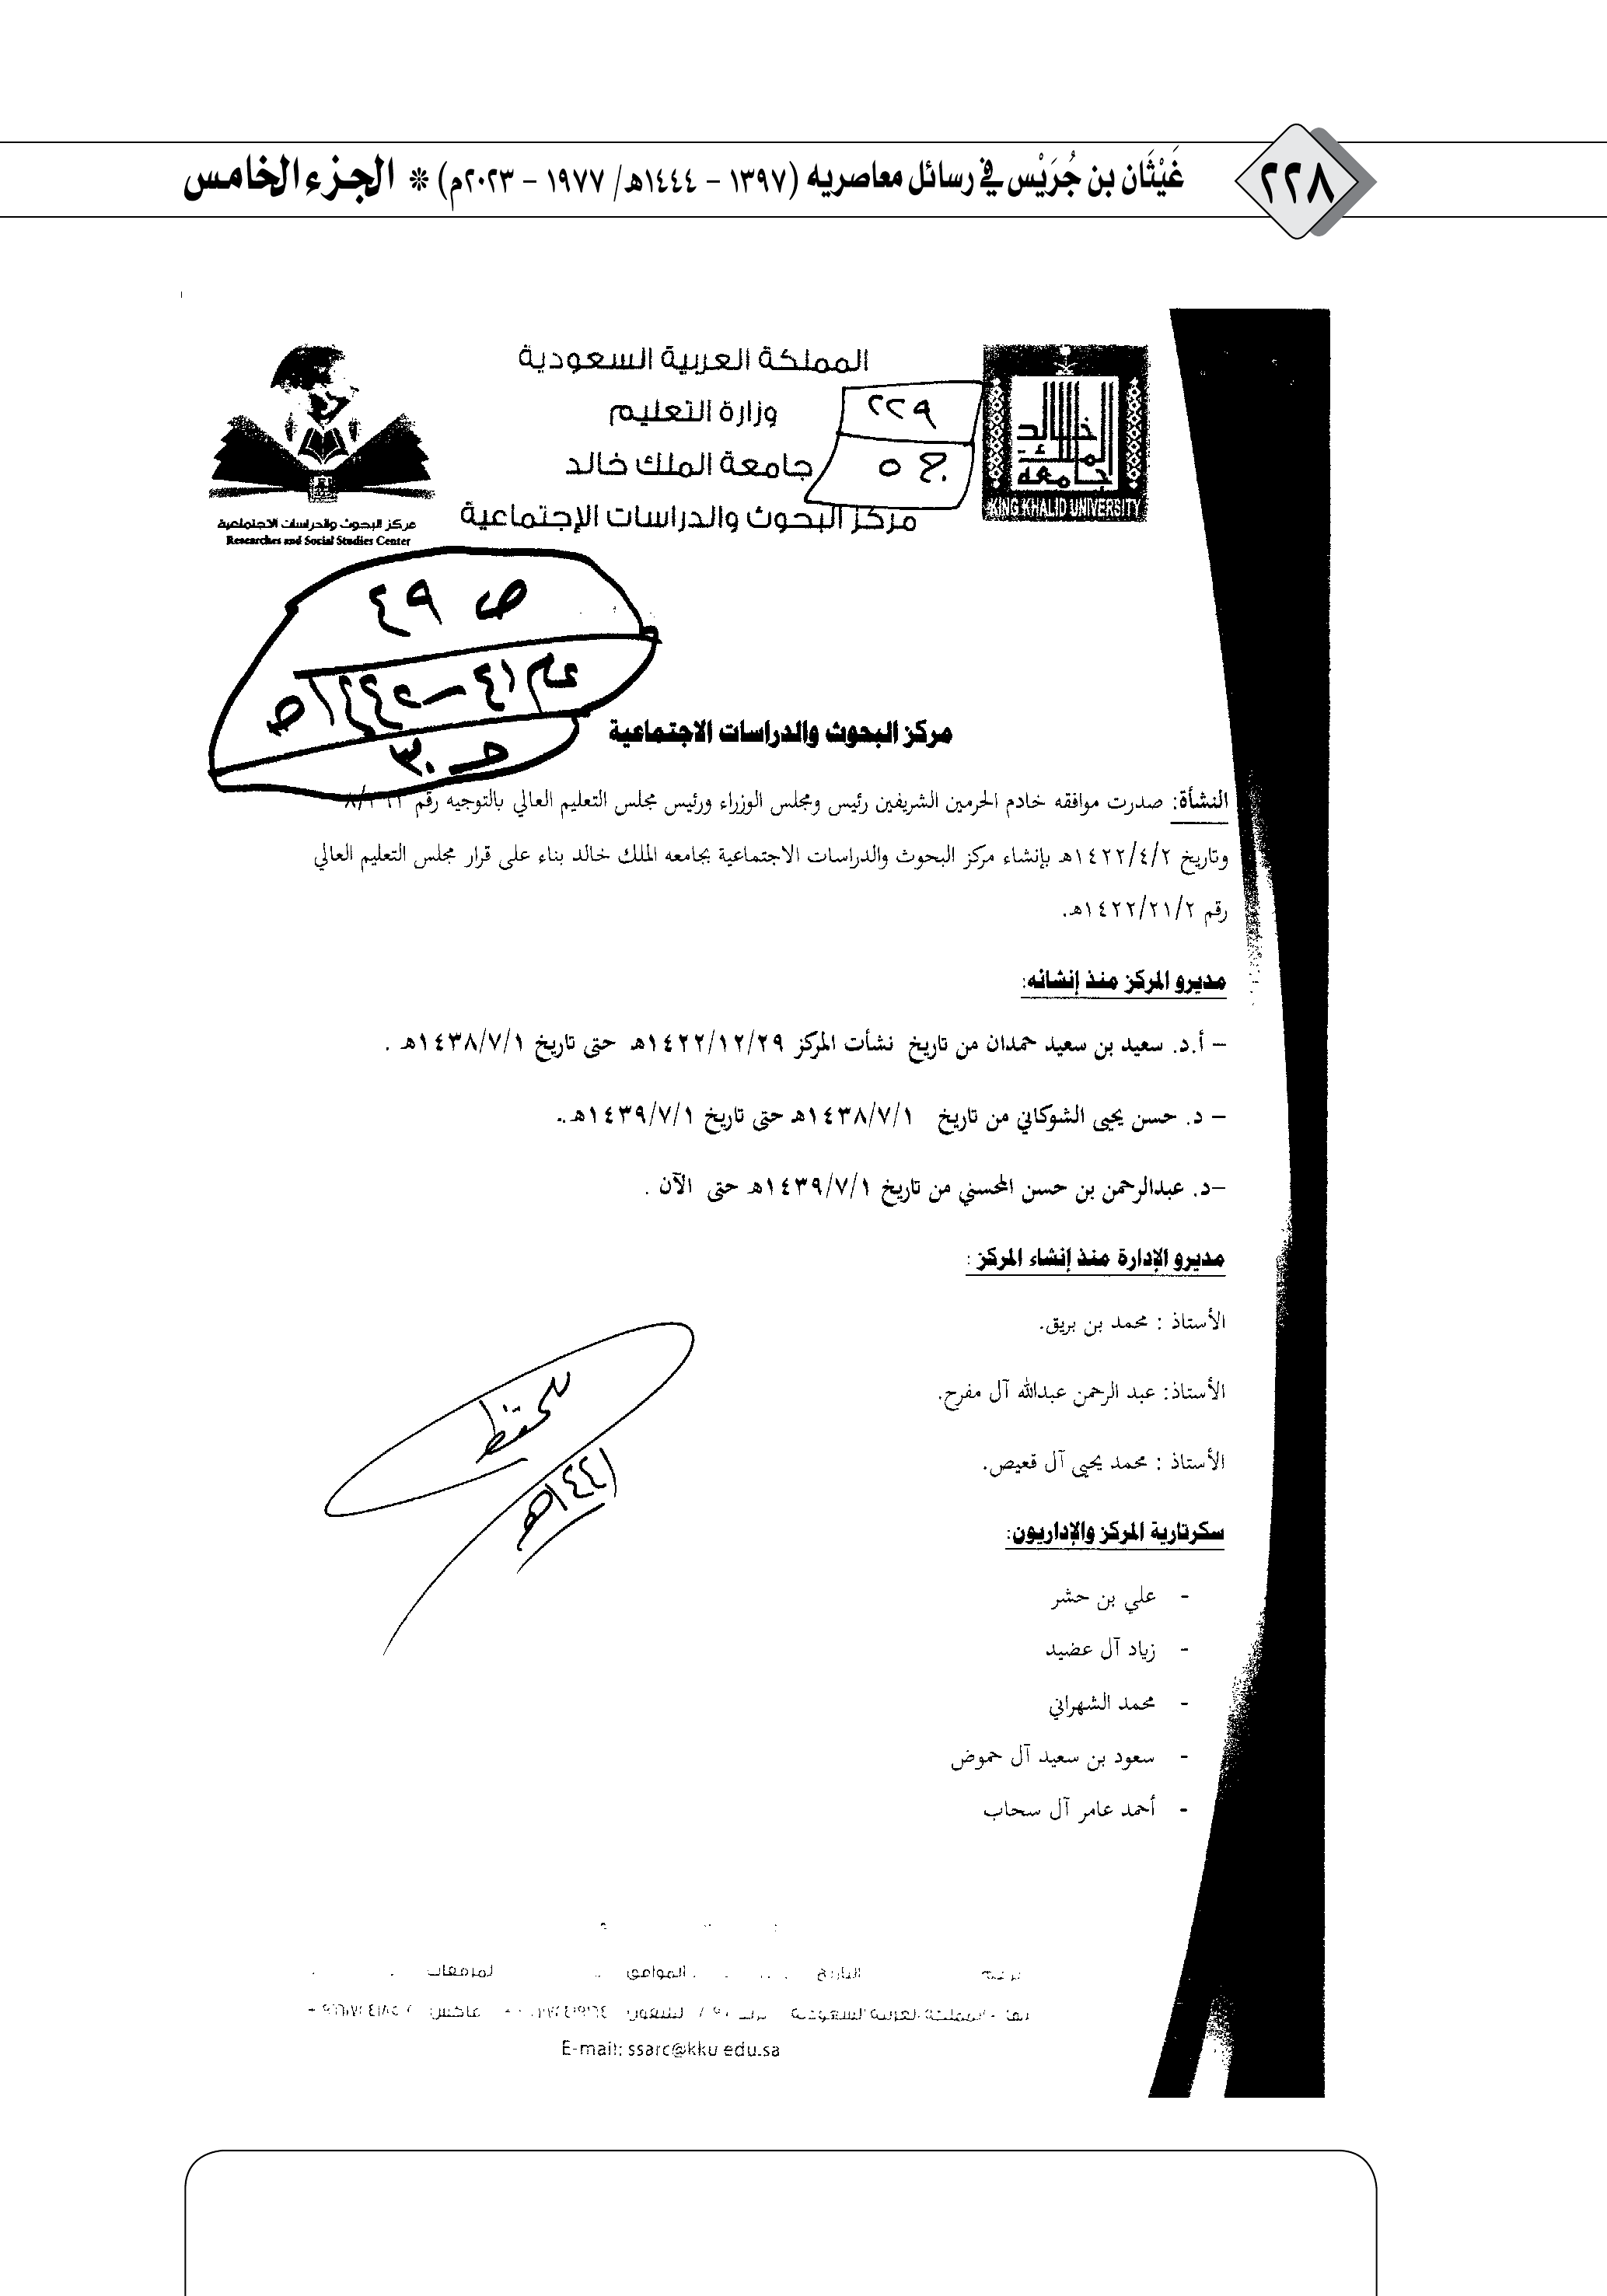 ٢٢٨
غَيْثَان بن جُرَيْس في رسائل معاصريه (١٣٩٧ - ١٤٤٤هـ/ ١٩٧٧ - ٢٠٢٣م) * الجزء الخامس
المملكة العربية السعودية
وزارة التعليم
جامعة الملك خالد
مركز البحوث والدراسات الإجتماعية
جامعة الملك خالد
KING KHALID UNIVERSITY
٢٢٩
ج ٥
مركز البحوث والدراسات الاجتماعية
Researches and Social Studies Center
ص ٤٩
ج ٣٠
مركز البحوث والدراسات الاجتماعية
النشأة: صدرت موافقه خادم الحرمين الشريفين رئيس ومجلس الوزراء ورئيس مجلس التعليم العالي بالتوجيه رقم
وتاريخ ١٤٢٢/٤/٢هـ بإنشاء مركز البحوث والدراسات الاجتماعية بجامعه الملك خالد بناء على قرار مجلس التعليم العالي
رقم ١٤٢٢/٢١/٢هـ.
مديرو المركز منذ إنشائه:
– أ.د. سعيد بن سعيد حمدان من تاريخ نشأت المركز ١٤٢٢/١٢/٢٩هـ حتى تاريخ ١٤٣٨/٧/١هـ .
– د. حسن يحيى الشوكاني من تاريخ ١٤٣٨/٧/١هـ حتى تاريخ ١٤٣٩/٧/١هـ.
–د. عبدالرحمن بن حسن المحسني من تاريخ ١٤٣٩/٧/١هـ حتى الآن .
مديرو الإدارة منذ إنشاء المركز :
الأستاذ : محمد بن بريق.
الأستاذ: عبد الرحمن عبدالله آل مفرح.
الأستاذ : محمد يحيى آل قعيص.
للحفظ
١٤٤١هـ
سكرتارية المركز والإداريون:
- علي بن حشر
- زياد آل عضيد
- محمد الشهراني
- سعود بن سعيد آل حموض
- أحمد عامر آل سحاب
التاريخ الموافق المرفقات
E-mail: ssarc@kku edu.sa